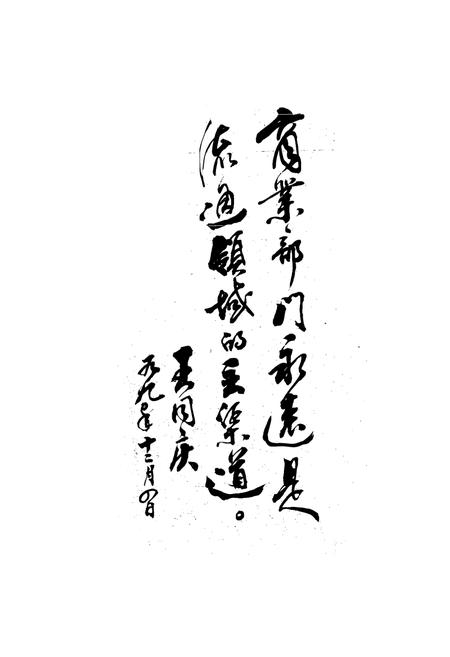 商業部门永遠是
流通領域的主渠道。
王同庆
一九九〇年十二月四日